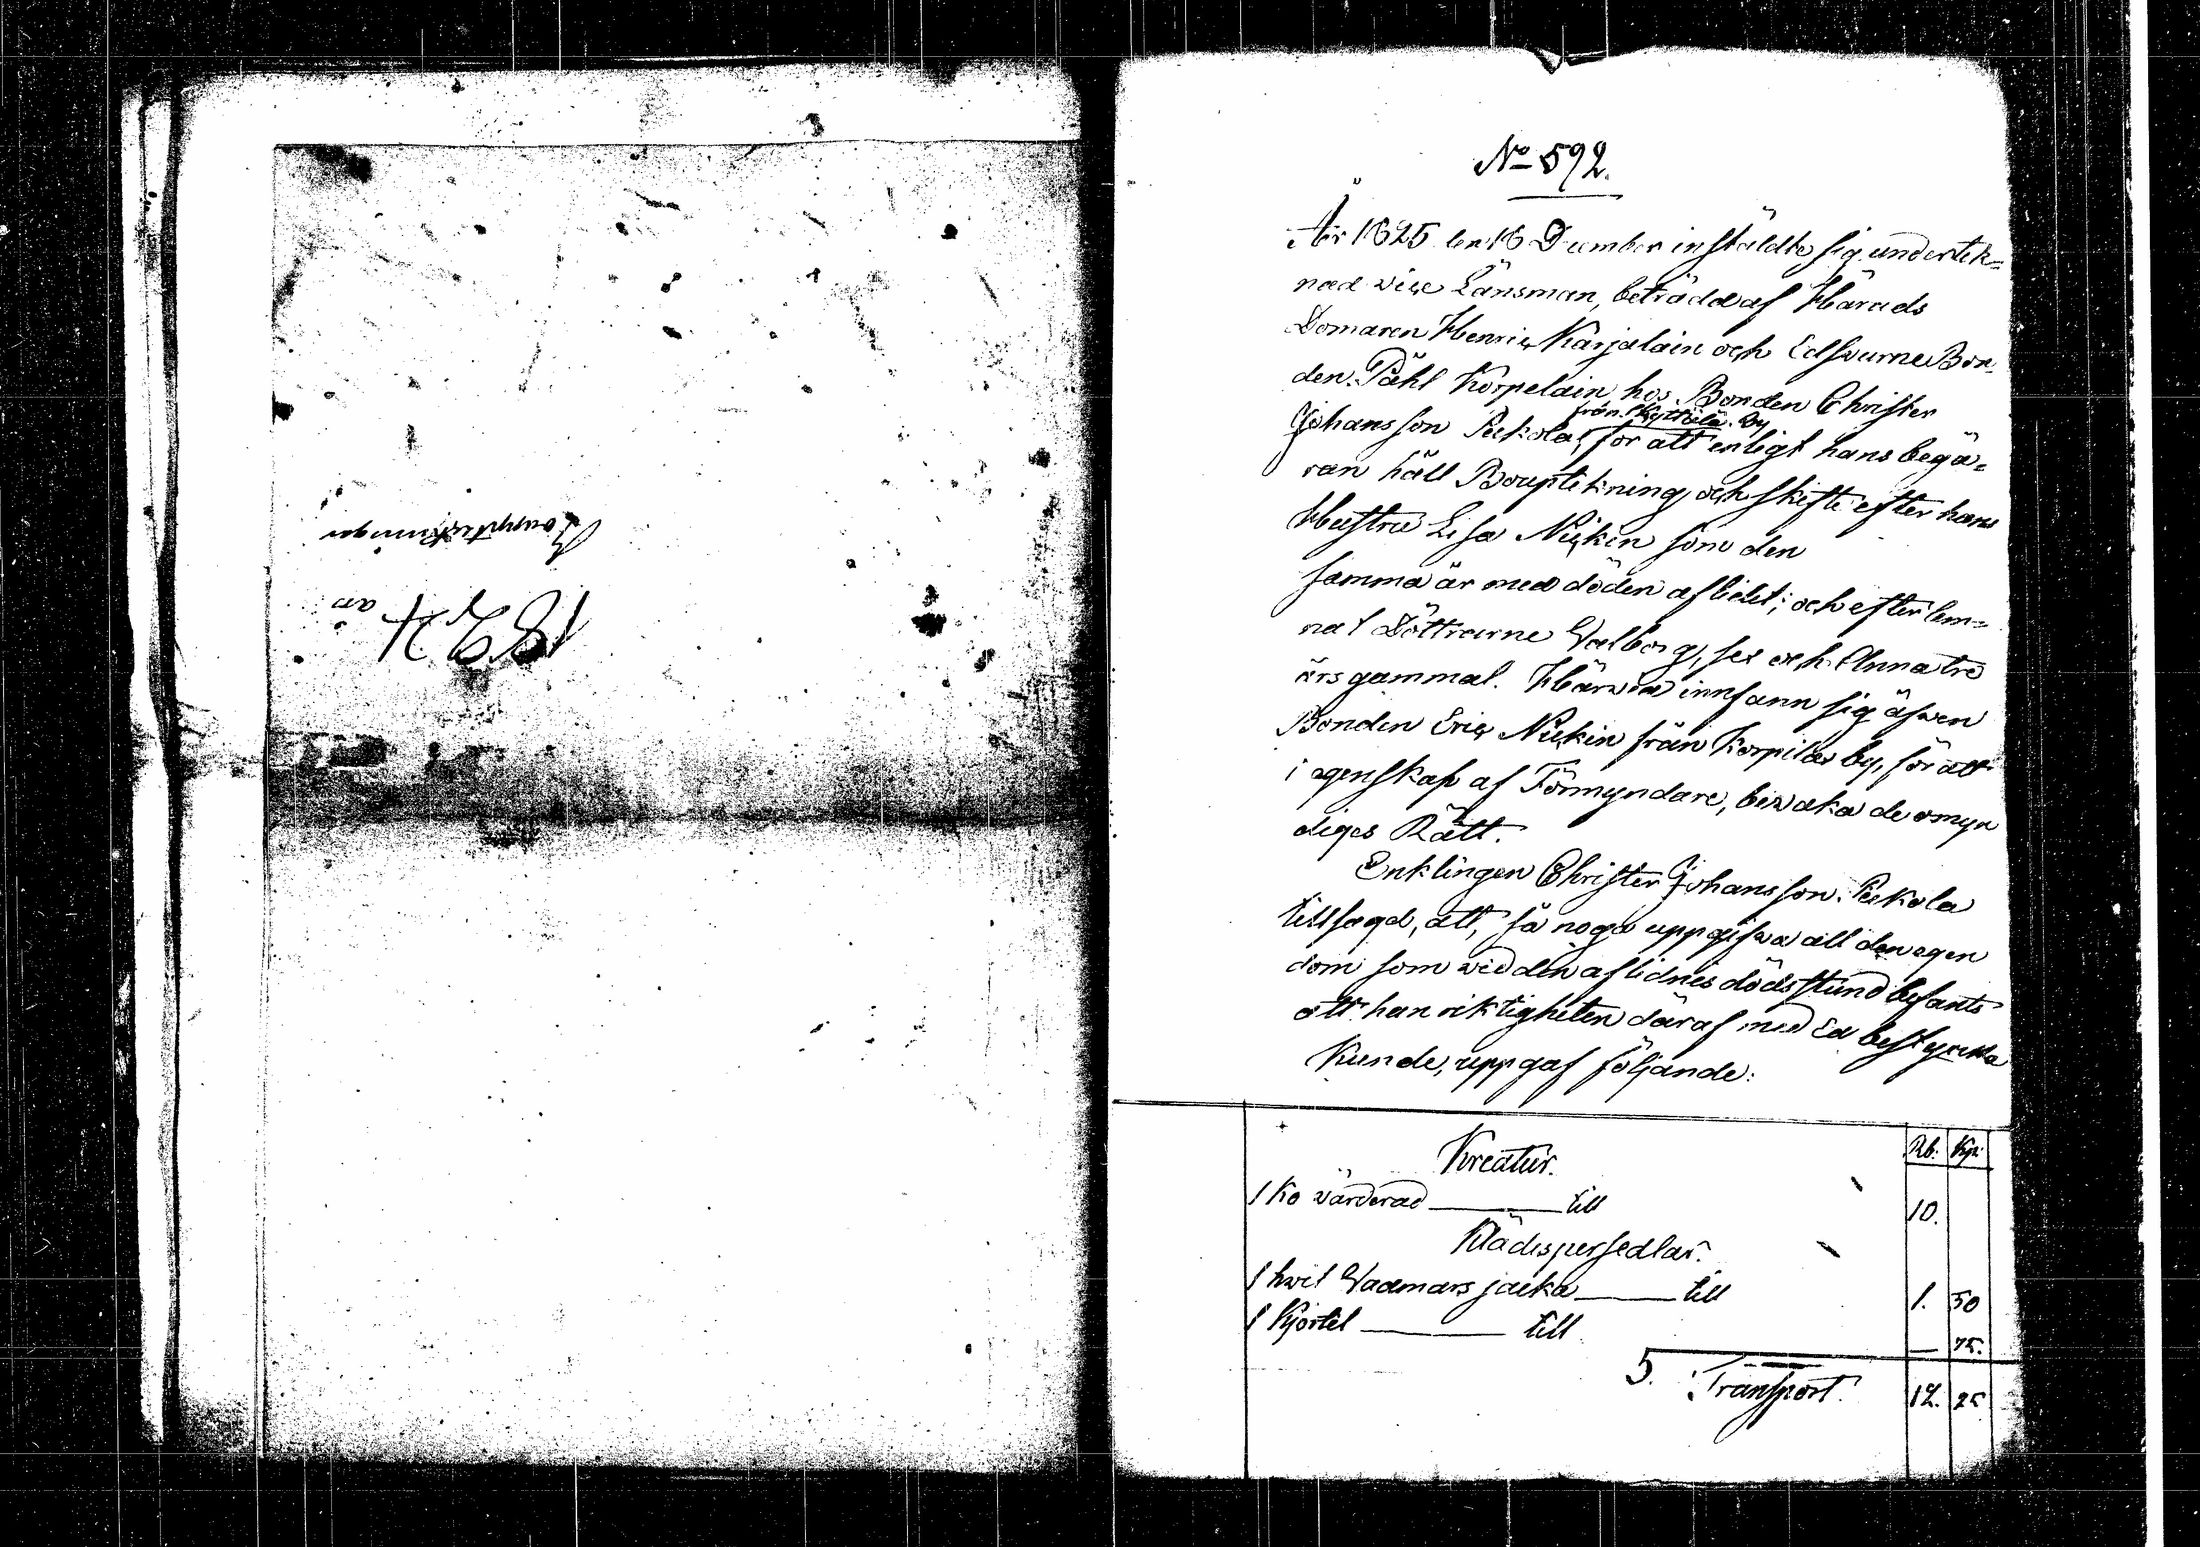 Bouppteckningar
1824 år
No 592.
År 1825 den 16 December instäldte sig undertek=
nad vice Länsman, beträdd af Härads
Domaren Henric Karjalain och Edsvurne Bon¬
den Påhl Korpelain, hos Bonden Christer
från Kyttälä by
Johansson Peekola, för att enligt hans begä=
ran håll Bouptekning och skifte efter hans
Hustru Lisa Nickin som den
samma år med döden aflidit; och efterlem=
nat Döttrarne Walborg, sex och Anna tre
års gammal. Härvid innfann sig äfwen
Bonden Eric Nickin från Korpilax by, för att
i egenskap af Förmyndare, bevaka de omyn
diges Rätt.
Enklingen Christer Johansson Peekola
tillsagd, att, så noga uppgifwa all den egen
dom som wid den aflidnes dödsstund befants
att han riktigheten däraf med Ed bestyrcka
kunde, uppgaf följande:
Rb. Kp:
Kreatur.
1 Ko wärderad ___ till 10.
Klädespersedlar.
1 hwit Wadmars jacka ___ till 1. 50
1 Kjortel ___ till — 75.
5. Transport. 12. 25